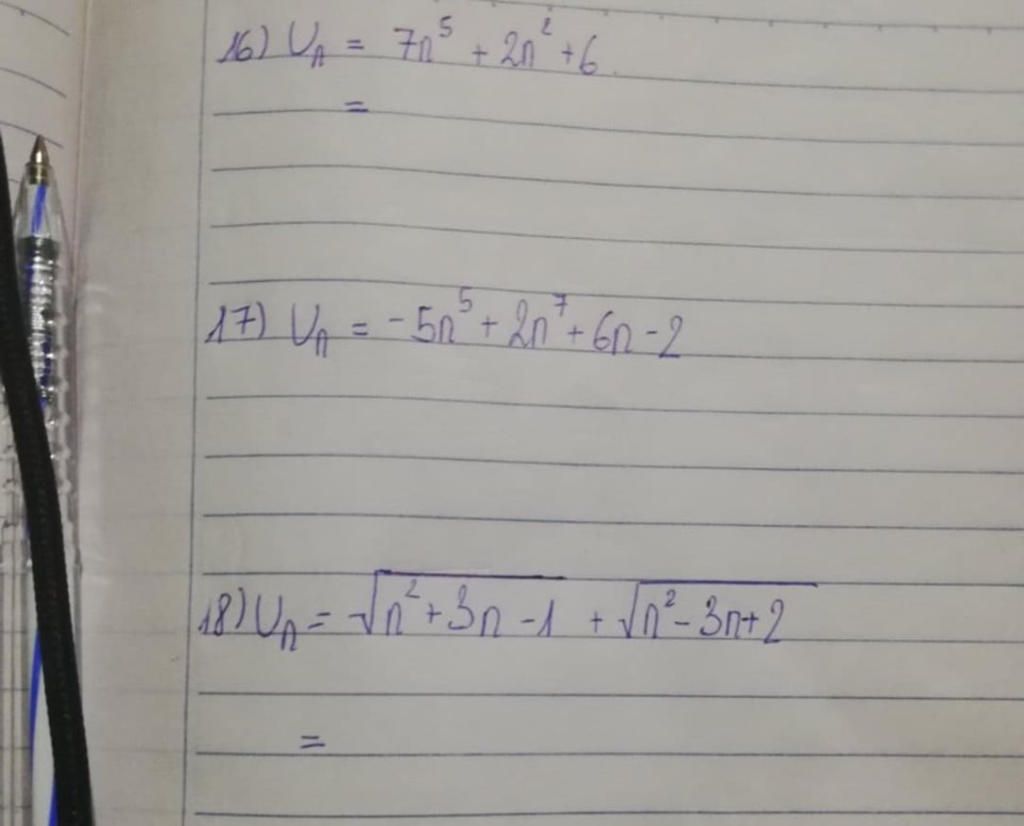 16) Uₙ = 7n⁵ + 2n² + 6
=
17) Uₙ = -5n⁵ + 2n⁷ + 6n - 2
18) Uₙ = √(n² + 3n - 1) + √(n² - 3n + 2)
=